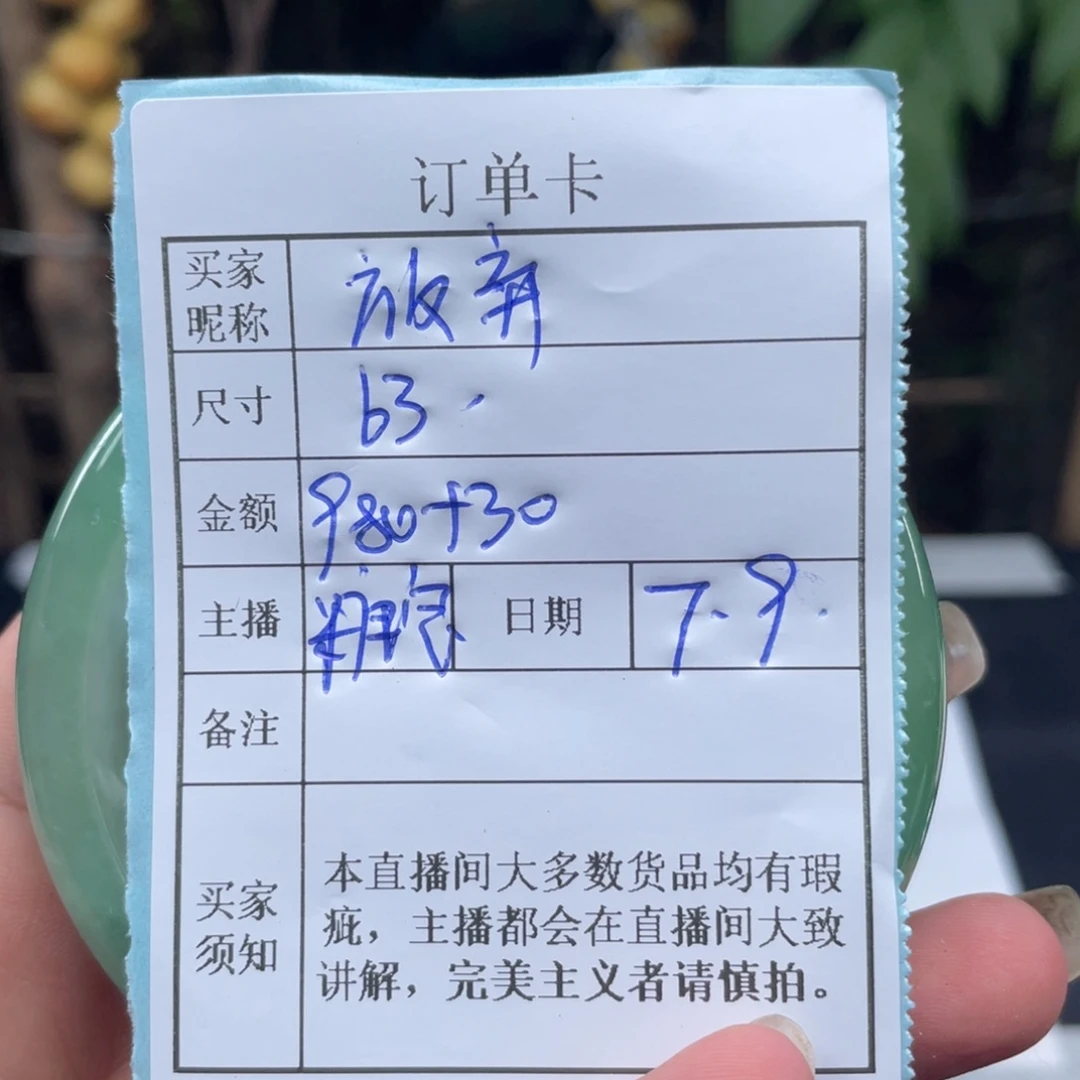 订单卡
买家昵称 放弃
尺寸 63.
金额 980+30
主播 日期 7.9.
备注
买家须知 本直播间大多数货品均有瑕
疵，主播都会在直播间大致
讲解，完美主义者请慎拍。